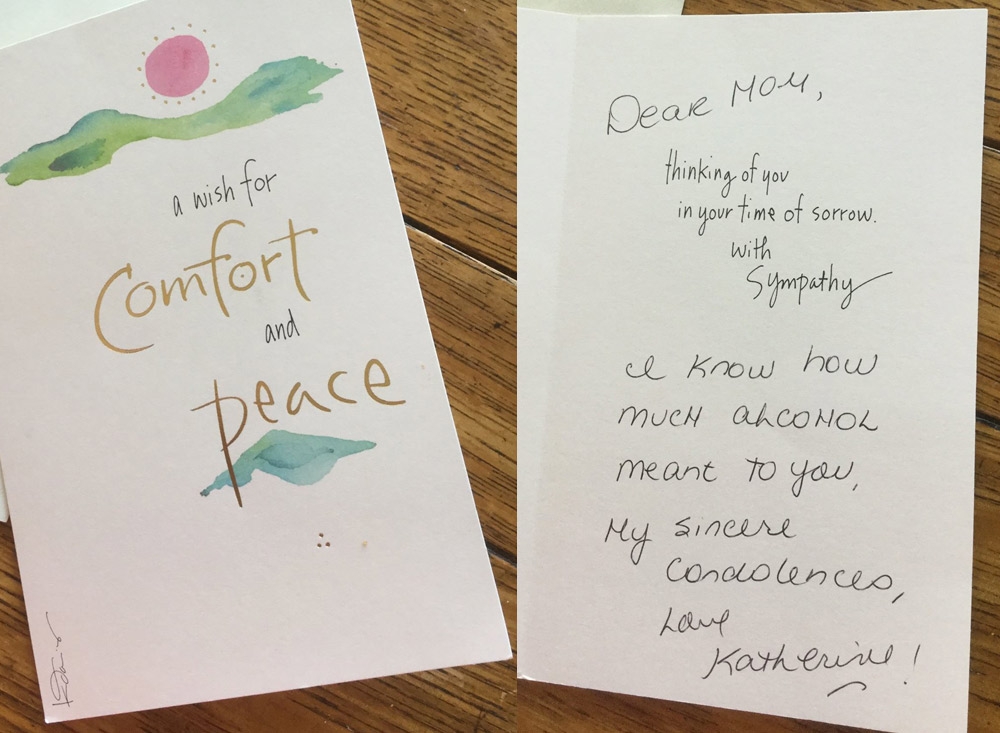 a wish for
Comfort
and
peace
Dear Mom,
thinking of you
in your time of sorrow.
with
Sympathy
I know how
much alcohol
meant to you,
My sincere
Condolences,
Love
Katherine!